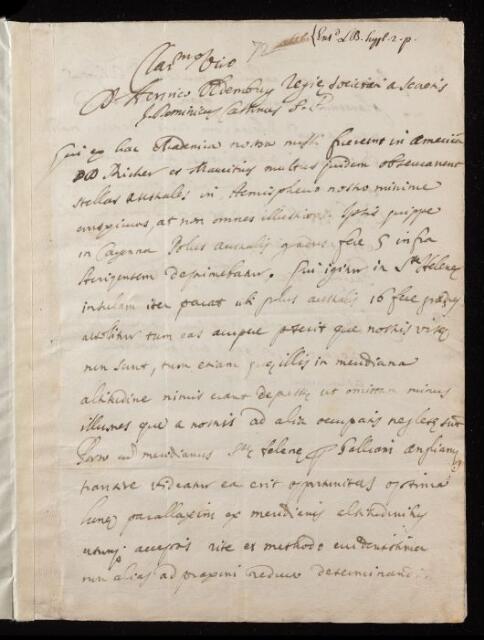 (Entd LB. Suppl. 2. p.
Clarmo Viro
D. Henrico Oldemburg Regiæ Societati a Secretis
J. Dominicus Cassinus S. P.
Qui ex hac Academia nostra missi fuerunt in America
DD Richer et Mauritius multas quidem observarunt
stellas australes in Hemispherio nostro minime
conspicuas, at non omnes illustriores. Ipsis quippe
in Cayenna Polus australis gradus fere 5 infra
horizontem deprimebatur. Qui igitur in Stæ Helenæ
insulam iter parat ubi polus australis 16 fere gradus
attollitur tum eas quæ nostris visæ
non sunt, tum etiam quæ illis in meridiana
altitudine nimis erant depressæ ut omittam minus
illustres quæ a nostris ad alia occupatis neglectæ sunt
Porro cum meridianus Stæ Helenæ Galliam Angliamque
transire videatur ea erit opportunitas optima
lunæ parallaxim ex meridianis altitudinibus
utrimque acceptis rite ex methodo evidentissima
non alias ad praxim reducta determinandi.